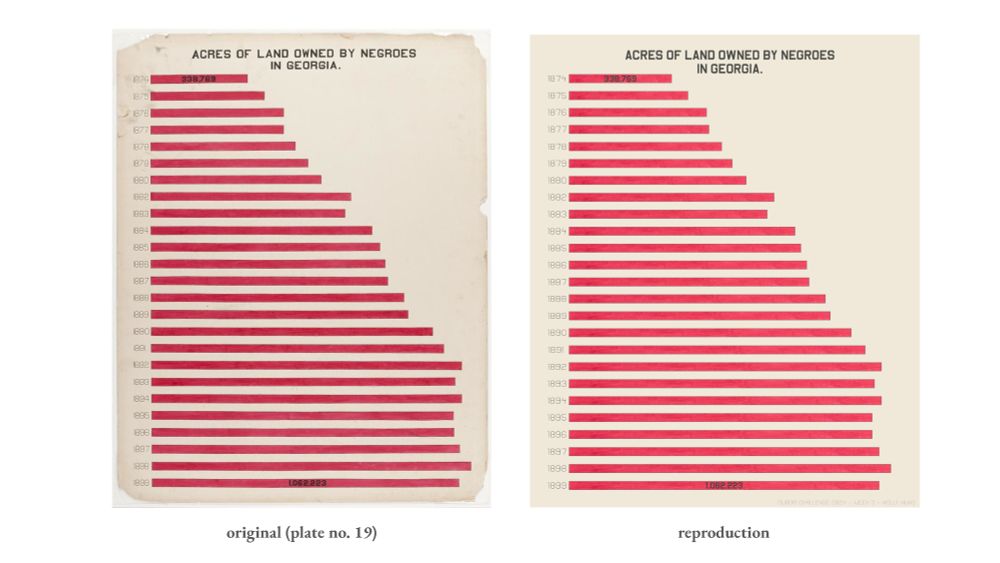 ACRES OF LAND OWNED BY NEGROES
IN GEORGIA.
1874 338,769
1875
1876
1877
1878
1879
1880
1882
1883
1884
1885
1886
1887
1888
1889
1890
1891
1892
1893
1894
1895
1896
1897
1898
1899 1,062,223
original (plate no. 19)
ACRES OF LAND OWNED BY NEGROES
IN GEORGIA.
1874 338,769
1875
1876
1877
1878
1879
1880
1882
1883
1884
1885
1886
1887
1888
1889
1890
1891
1892
1893
1894
1895
1896
1897
1898
1899 1,062,223
CHALLENGE
reproduction